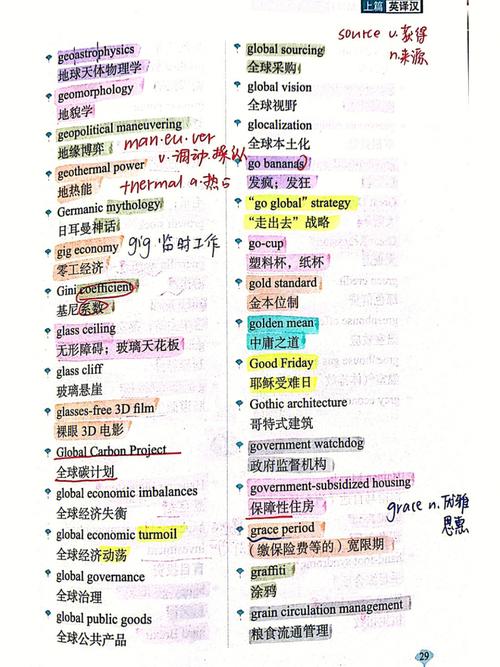 上篇 英译汉
geoastrophysics
地球天体物理学
geomorphology
地貌学
geopolitical maneuvering
地缘博弈
man·eu·ver
v.调动.操纵
geothermal power
地热能
thermal a.热的
Germanic mythology
日耳曼神话
gig economy
零工经济
gig 临时工作
Gini coefficient
基尼系数
glass ceiling
无形障碍；玻璃天花板
glass cliff
玻璃悬崖
glasses-free 3D film
裸眼 3D 电影
Global Carbon Project
全球碳计划
global economic imbalances
全球经济失衡
global economic turmoil
全球经济动荡
global governance
全球治理
global public goods
全球公共产品
source v.获得
n.来源
global sourcing
全球采购
global vision
全球视野
glocalization
全球本土化
go bananas
发疯；发狂
“go global” strategy
“走出去”战略
go-cup
塑料杯，纸杯
gold standard
金本位制
golden mean
中庸之道
Good Friday
耶稣受难日
Gothic architecture
哥特式建筑
government watchdog
政府监督机构
government-subsidized housing
保障性住房
grace n.优雅
恩惠
grace period
（缴保险费等的）宽限期
graffiti
涂鸦
grain circulation management
粮食流通管理
29